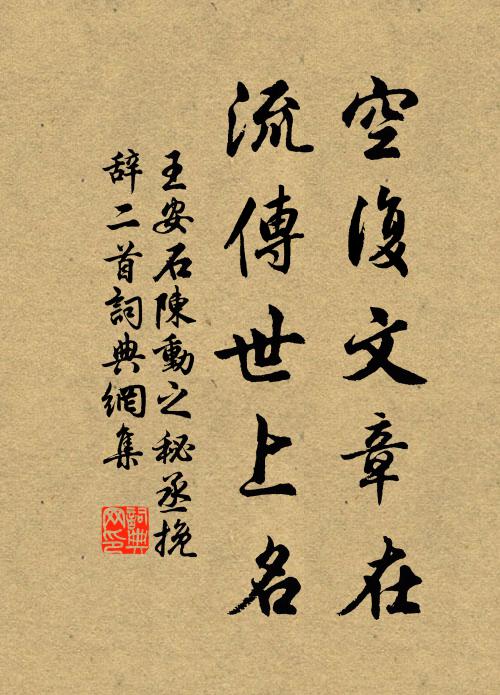 空復文章在
流傳世上名
王安石陳動之秘丞挽
辞二首詞典網集
詞典
网印